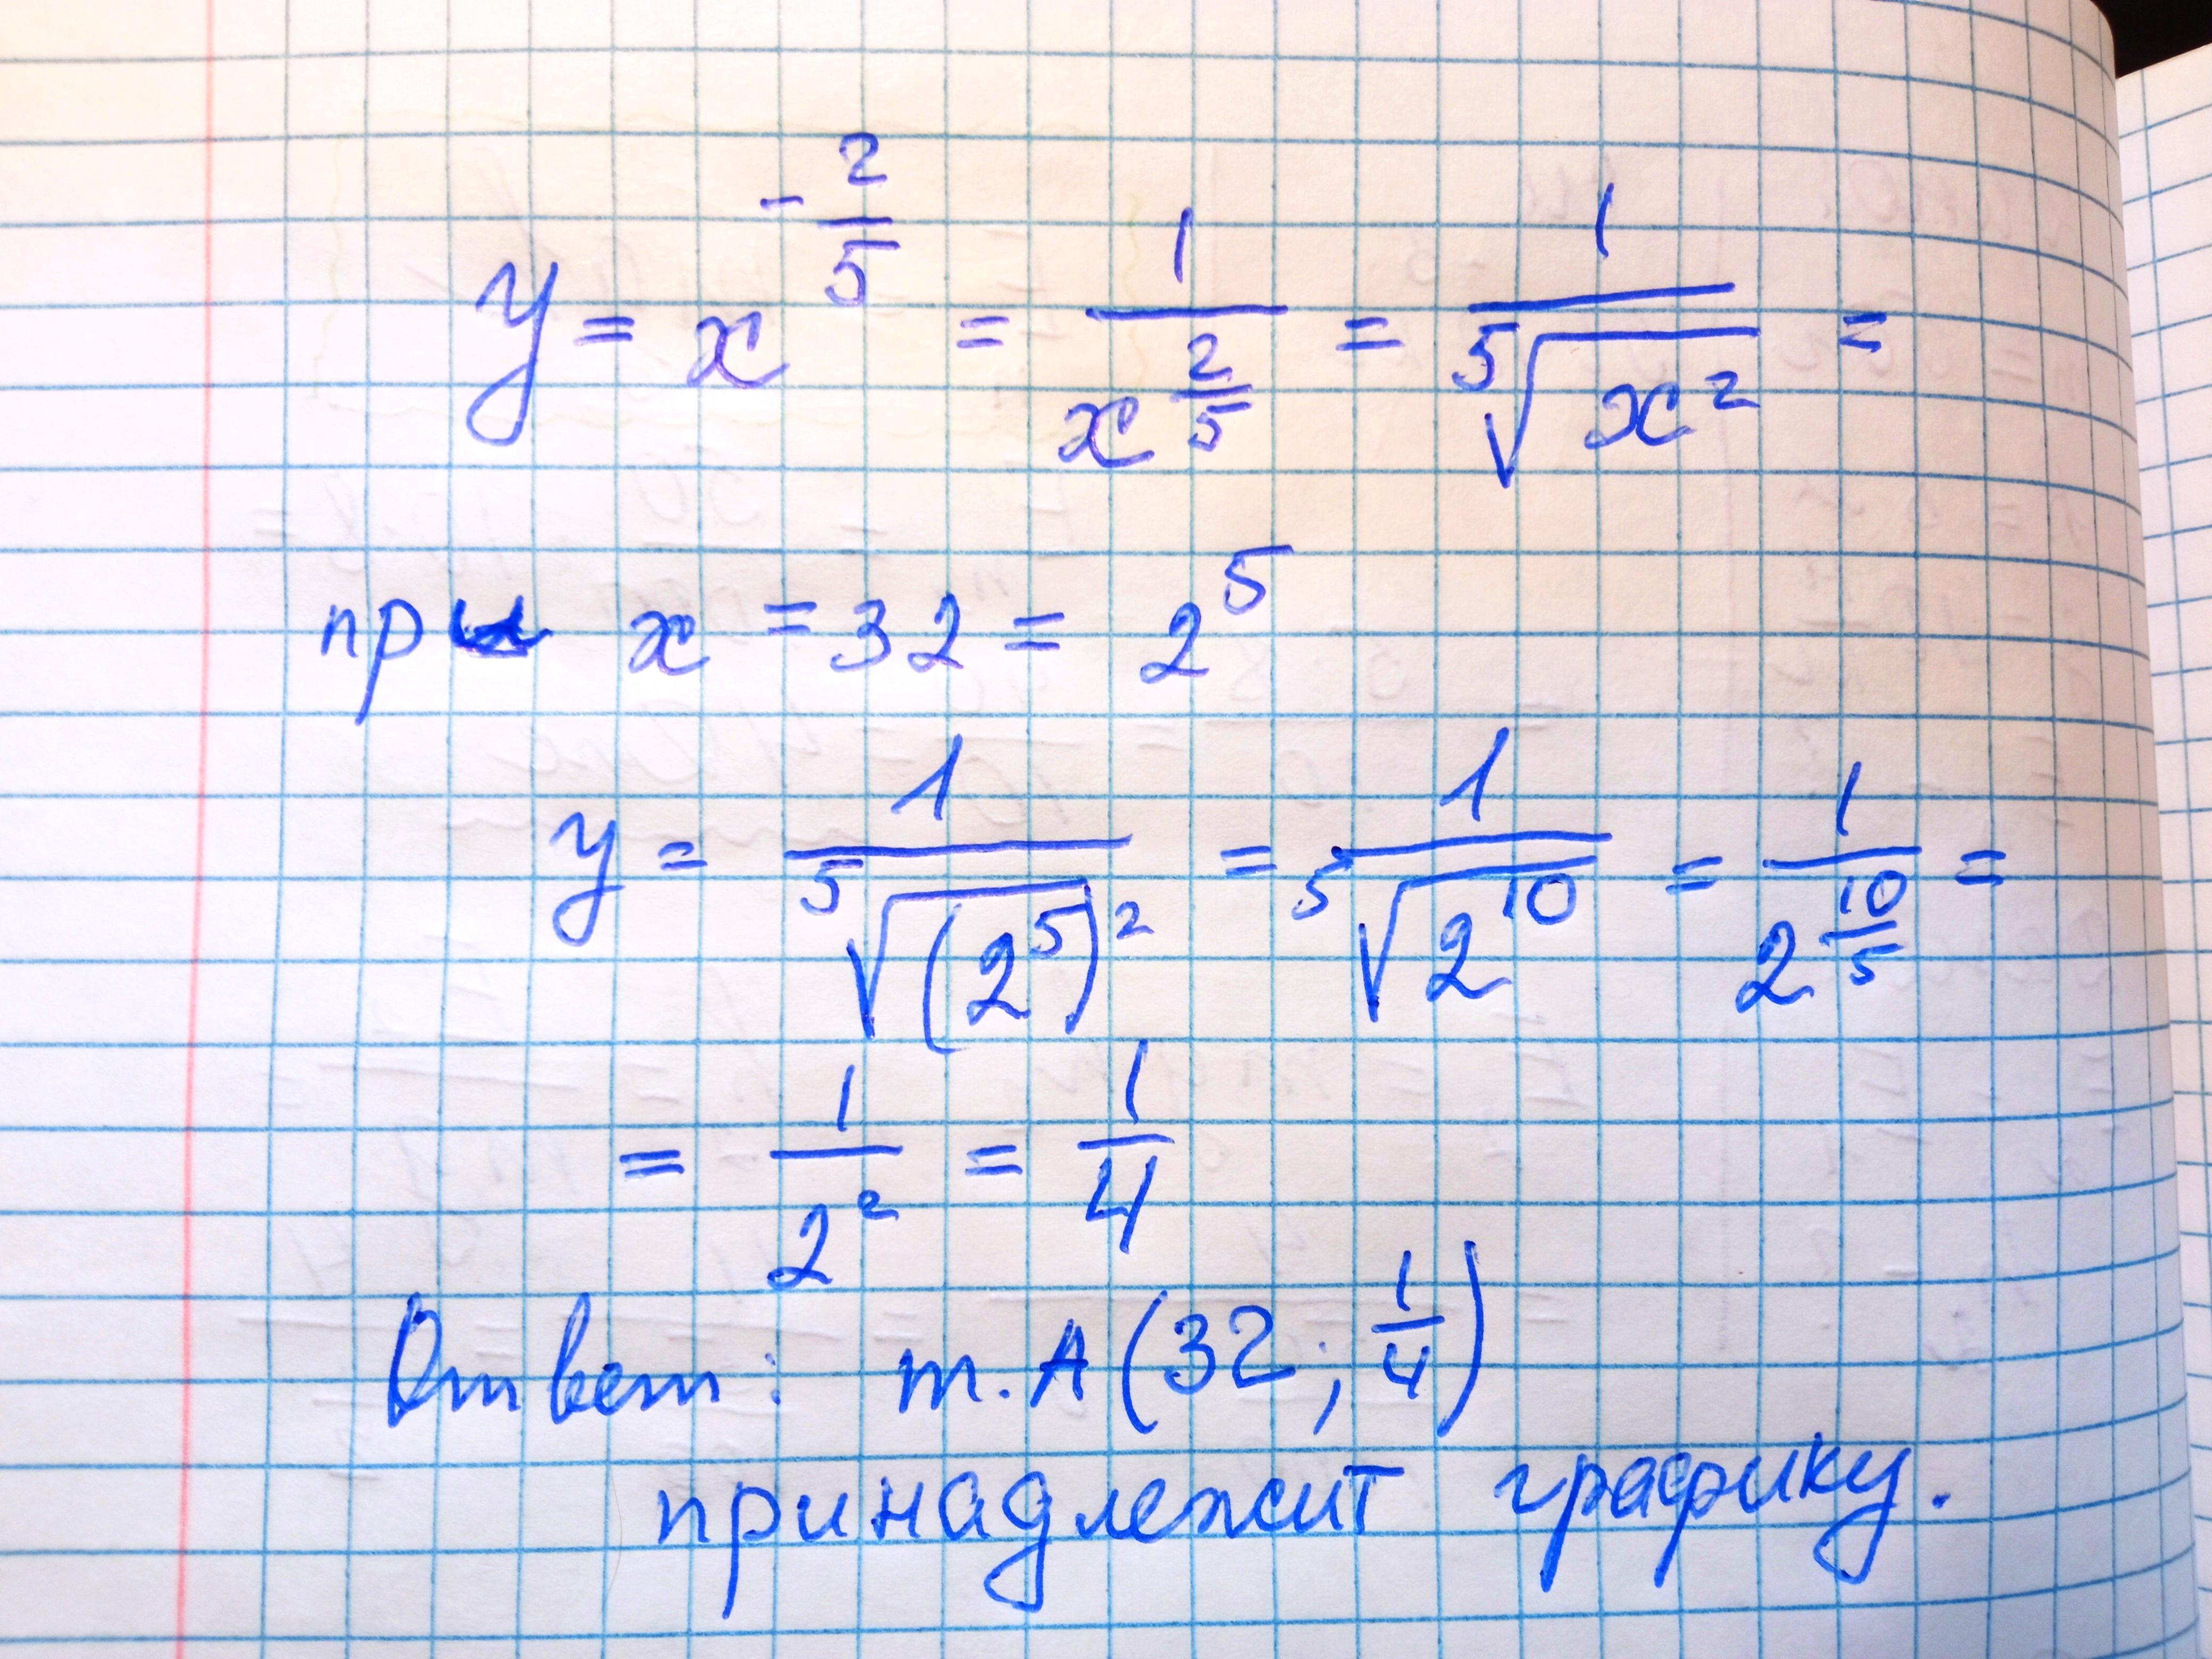 y = x^{-\frac{2}{5}} = \frac{1}{x^{\frac{2}{5}}} = \frac{1}{\sqrt[5]{x^2}} =
при x = 32 = 2^5
y = \frac{1}{\sqrt[5]{(2^5)^2}} = \frac{1}{\sqrt[5]{2^{10}}} = \frac{1}{2^{\frac{10}{5}}} =
= \frac{1}{2^2} = \frac{1}{4}
Ответ: т. А (32; \frac{1}{4})
принадлежит графику.